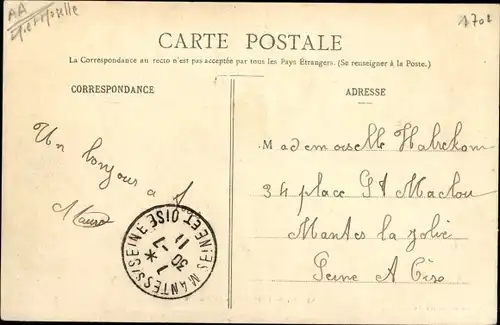 AA
1702
CARTE POSTALE
La Correspondance au recto n'est pas acceptée par tous les Pays Étrangers. (Se renseigner à la Poste.)
CORRESPONDANCE
ADRESSE
Un bonjour a
Mademoiselle
34 place St Maclou
Mantes la Jolie
Seine
MANTES S/SEINE SEINE ET OISE
30 -7
11